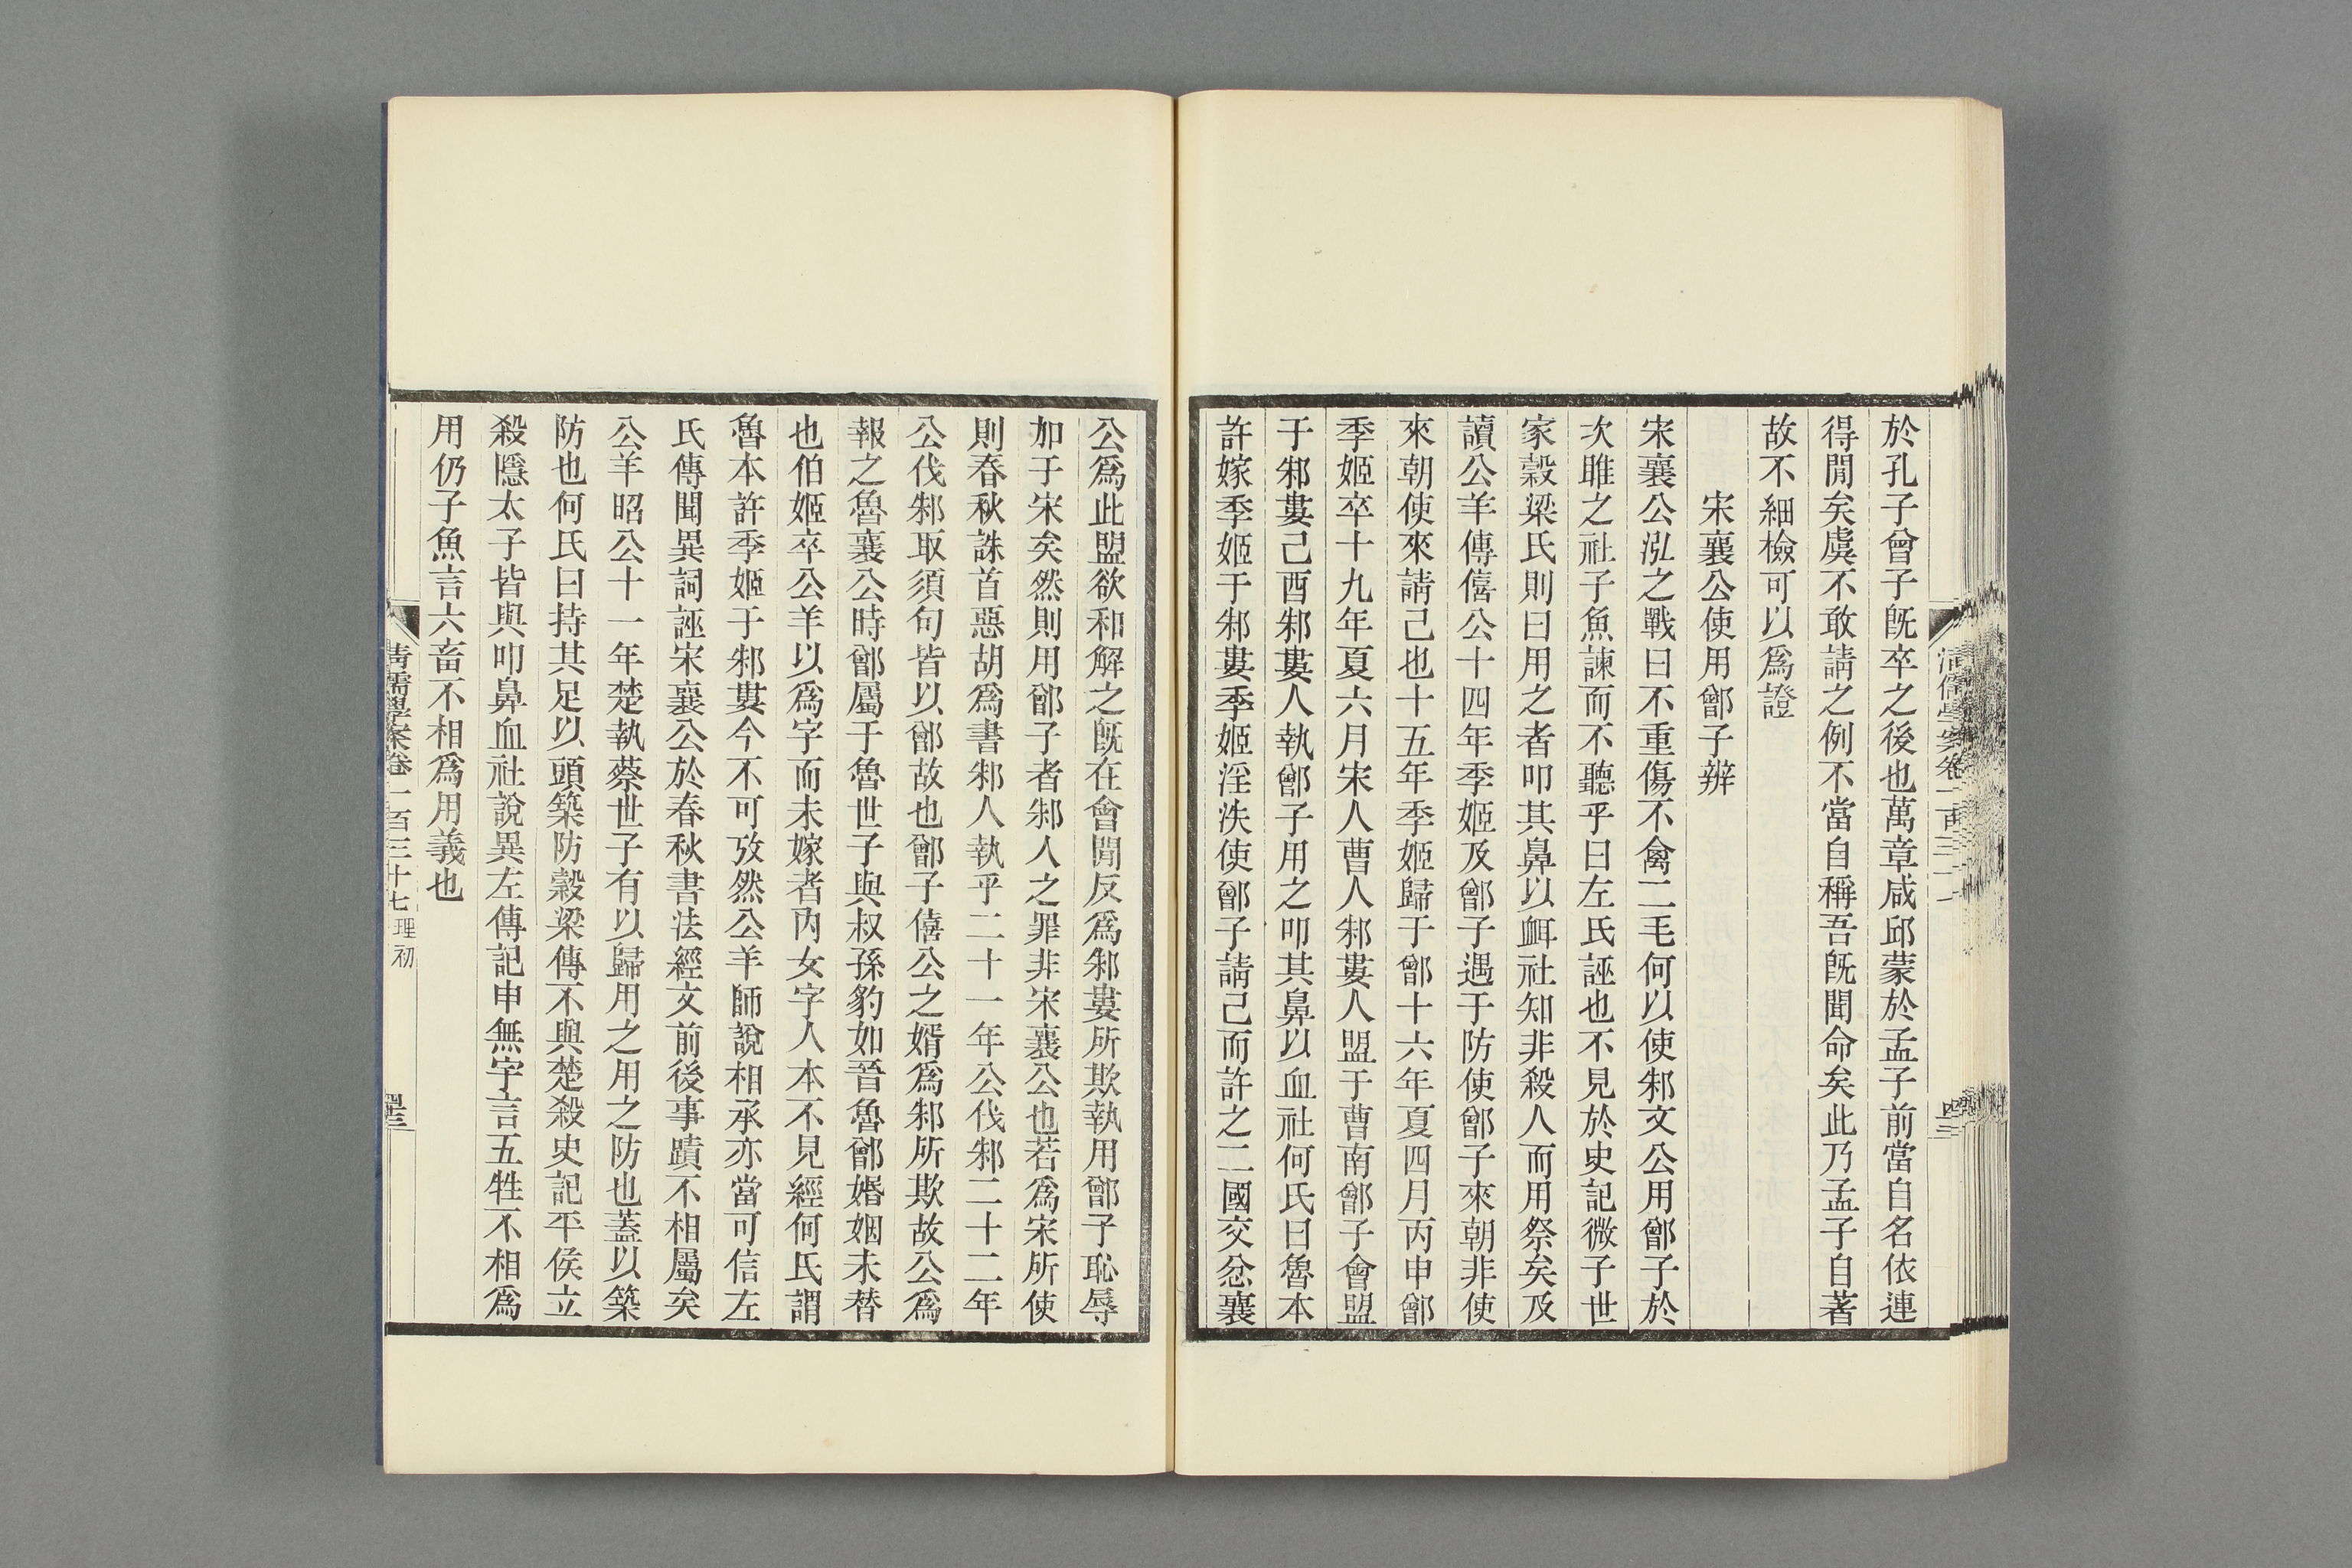 於孔子曾子旣卒之後也萬章咸邱蒙於孟子前當自名依連
得閒矣虞不敢請之例不當自稱吾旣聞命矣此乃孟子自著
故不細檢可以爲證
宋襄公使用鄫子辨
宋襄公泓之戰曰不重傷不禽二毛何以使邾文公用鄫子於
次雎之社子魚諫而不聽乎曰左氏誣也不見於史記微子世
家穀梁氏則曰用之者叩其鼻以衈社知非殺人而用祭矣及
讀公羊傳僖公十四年季姬及鄫子遇于防使鄫子來朝非使
來朝使來請己也十五年季姬歸于鄫十六年夏四月丙申鄫
季姬卒十九年夏六月宋人曹人邾婁人盟于曹南鄫子會盟
于邾婁己酉邾婁人執鄫子用之叩其鼻以血社何氏曰魯本
許嫁季姬于邾婁季姬淫泆使鄫子請己而許之二國交忿襄
公爲此盟欲和解之旣在會閒反爲邾婁所欺執用鄫子恥辱
加于宋矣然則用鄫子者邾人之罪非宋襄公也若爲宋所使
則春秋誅首惡胡爲書邾人執乎二十一年公伐邾二十二年
公伐邾取須句皆以鄫故也鄫子僖公之婿爲邾所欺故公爲
報之魯襄公時鄫屬于魯世子與叔孫豹如晉魯鄫婚姻未替
也伯姬卒公羊以爲字而未嫁者內女字人本不見經何氏謂
魯本許季姬于邾婁今不可攷然公羊師說相承亦當可信左
氏傳聞異詞誣宋襄公於春秋書法經文前後事蹟不相屬矣
公羊昭公十一年楚執蔡世子有以歸用之用之防也蓋以築
防也何氏曰持其足以頭築防穀梁傳不與楚殺史記平侯立
殺隱太子皆與叩鼻血社說異左傳記申無宇言五牲不相爲
用仍子魚言六畜不相爲用義也
清儒學案卷一百三十七 理初